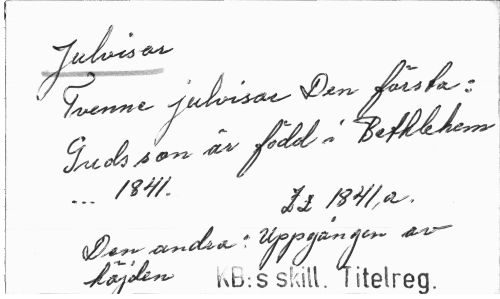 Julvisor
Tvenne julvisor Den första:
Guds son är född i Bethlehem
... 1841.
Zz 1841,a.
Den andra: Uppgången av
höjden
KB:s skill. Titelreg.